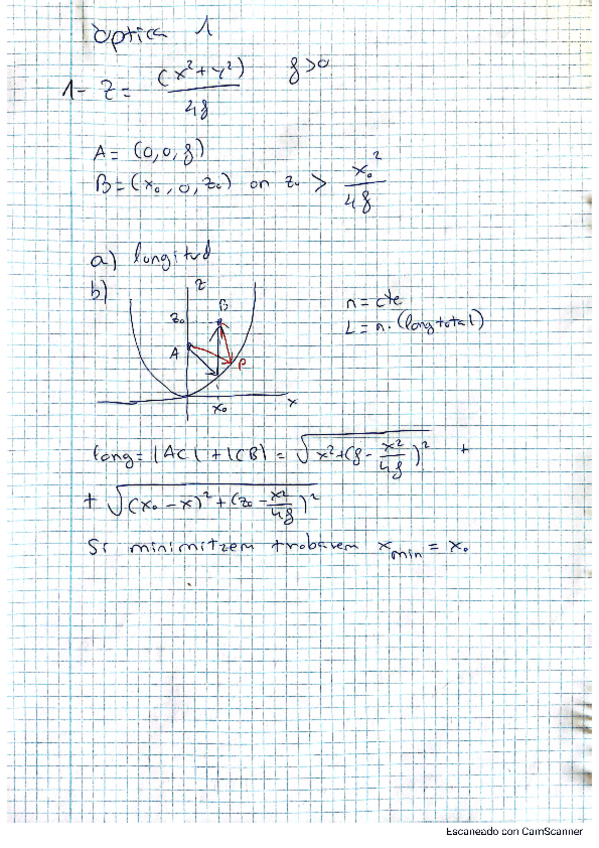 òptica 1
1- z = (x²+y²)/4f f>0
A = (0,0,f)
B = (x₀, 0, z₀) on z₀ > x₀²/4f
a) longitud
b)
z
z₀ B
A
P
x₀ x
n = cte
L = n · (long total)
long = |AC| + |CB| = √(x²+(f - x²/4f)²) +
+ √((x₀ - x)² + (z₀ - x²/4f)²)
Si minimitzem trobarem x_min = x₀
Escaneado con CamScanner